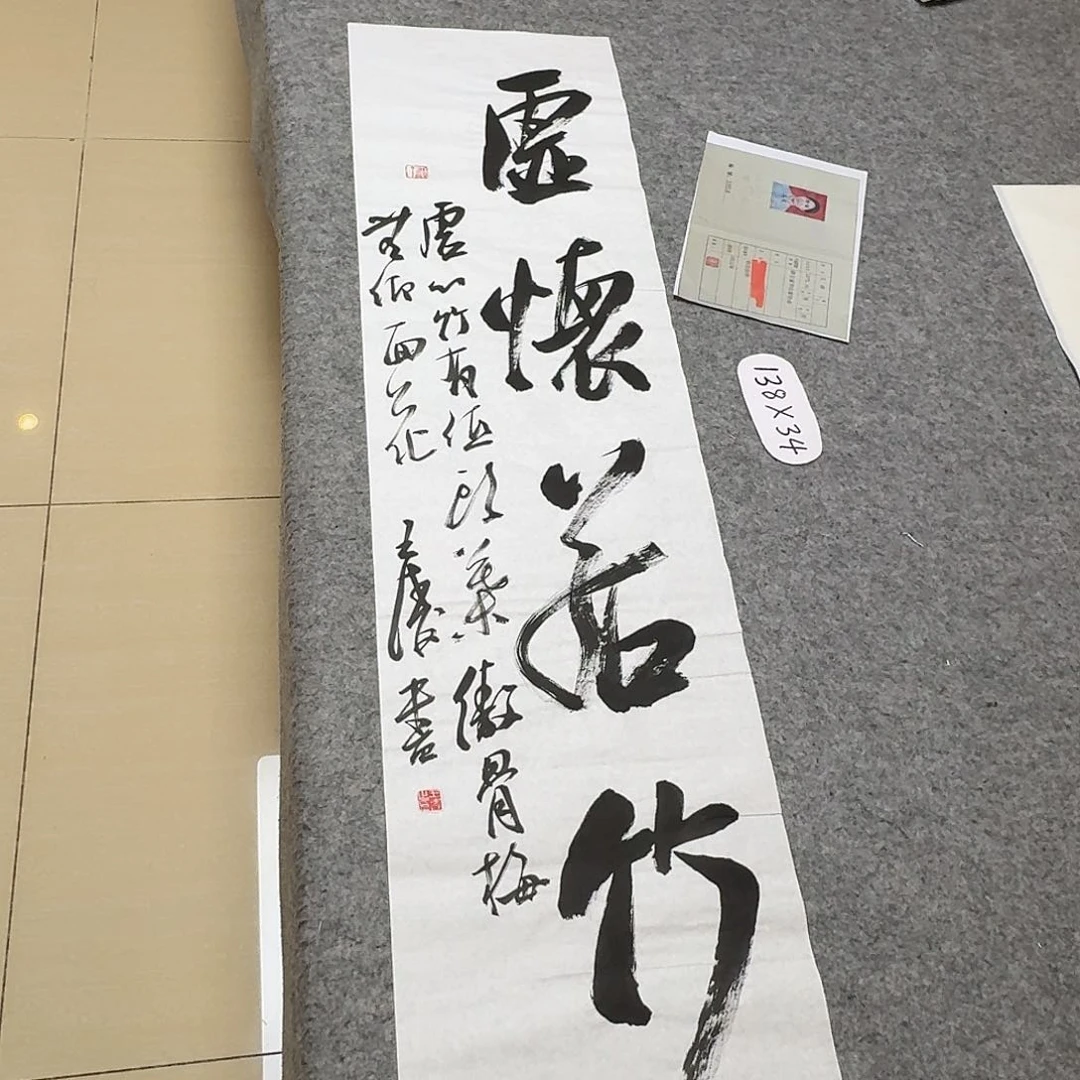 虛懷若竹
虚心竹有低頭葉 傲骨梅
無仰面花
書
138X34